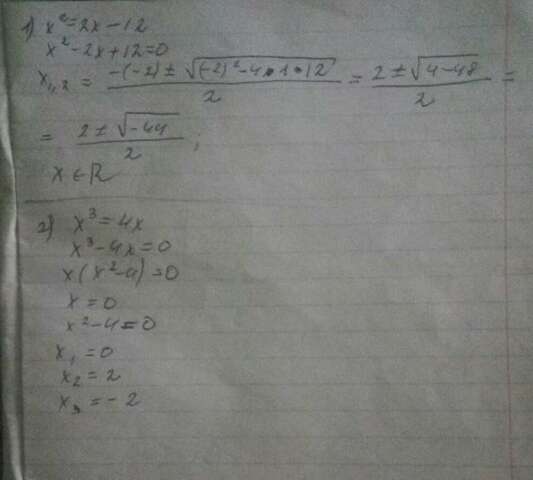 1) x² = 2x - 12
x² - 2x + 12 = 0
x₁,₂ = (-(-2) ± √((-2)² - 4·1·12))/2 = (2 ± √(4-48))/2 =
= (2 ± √(-44))/2 ;
x ∈ R
2) x³ = 4x
x³ - 4x = 0
x(x² - 4) = 0
x = 0
x² - 4 = 0
x₁ = 0
x₂ = 2
x₃ = -2